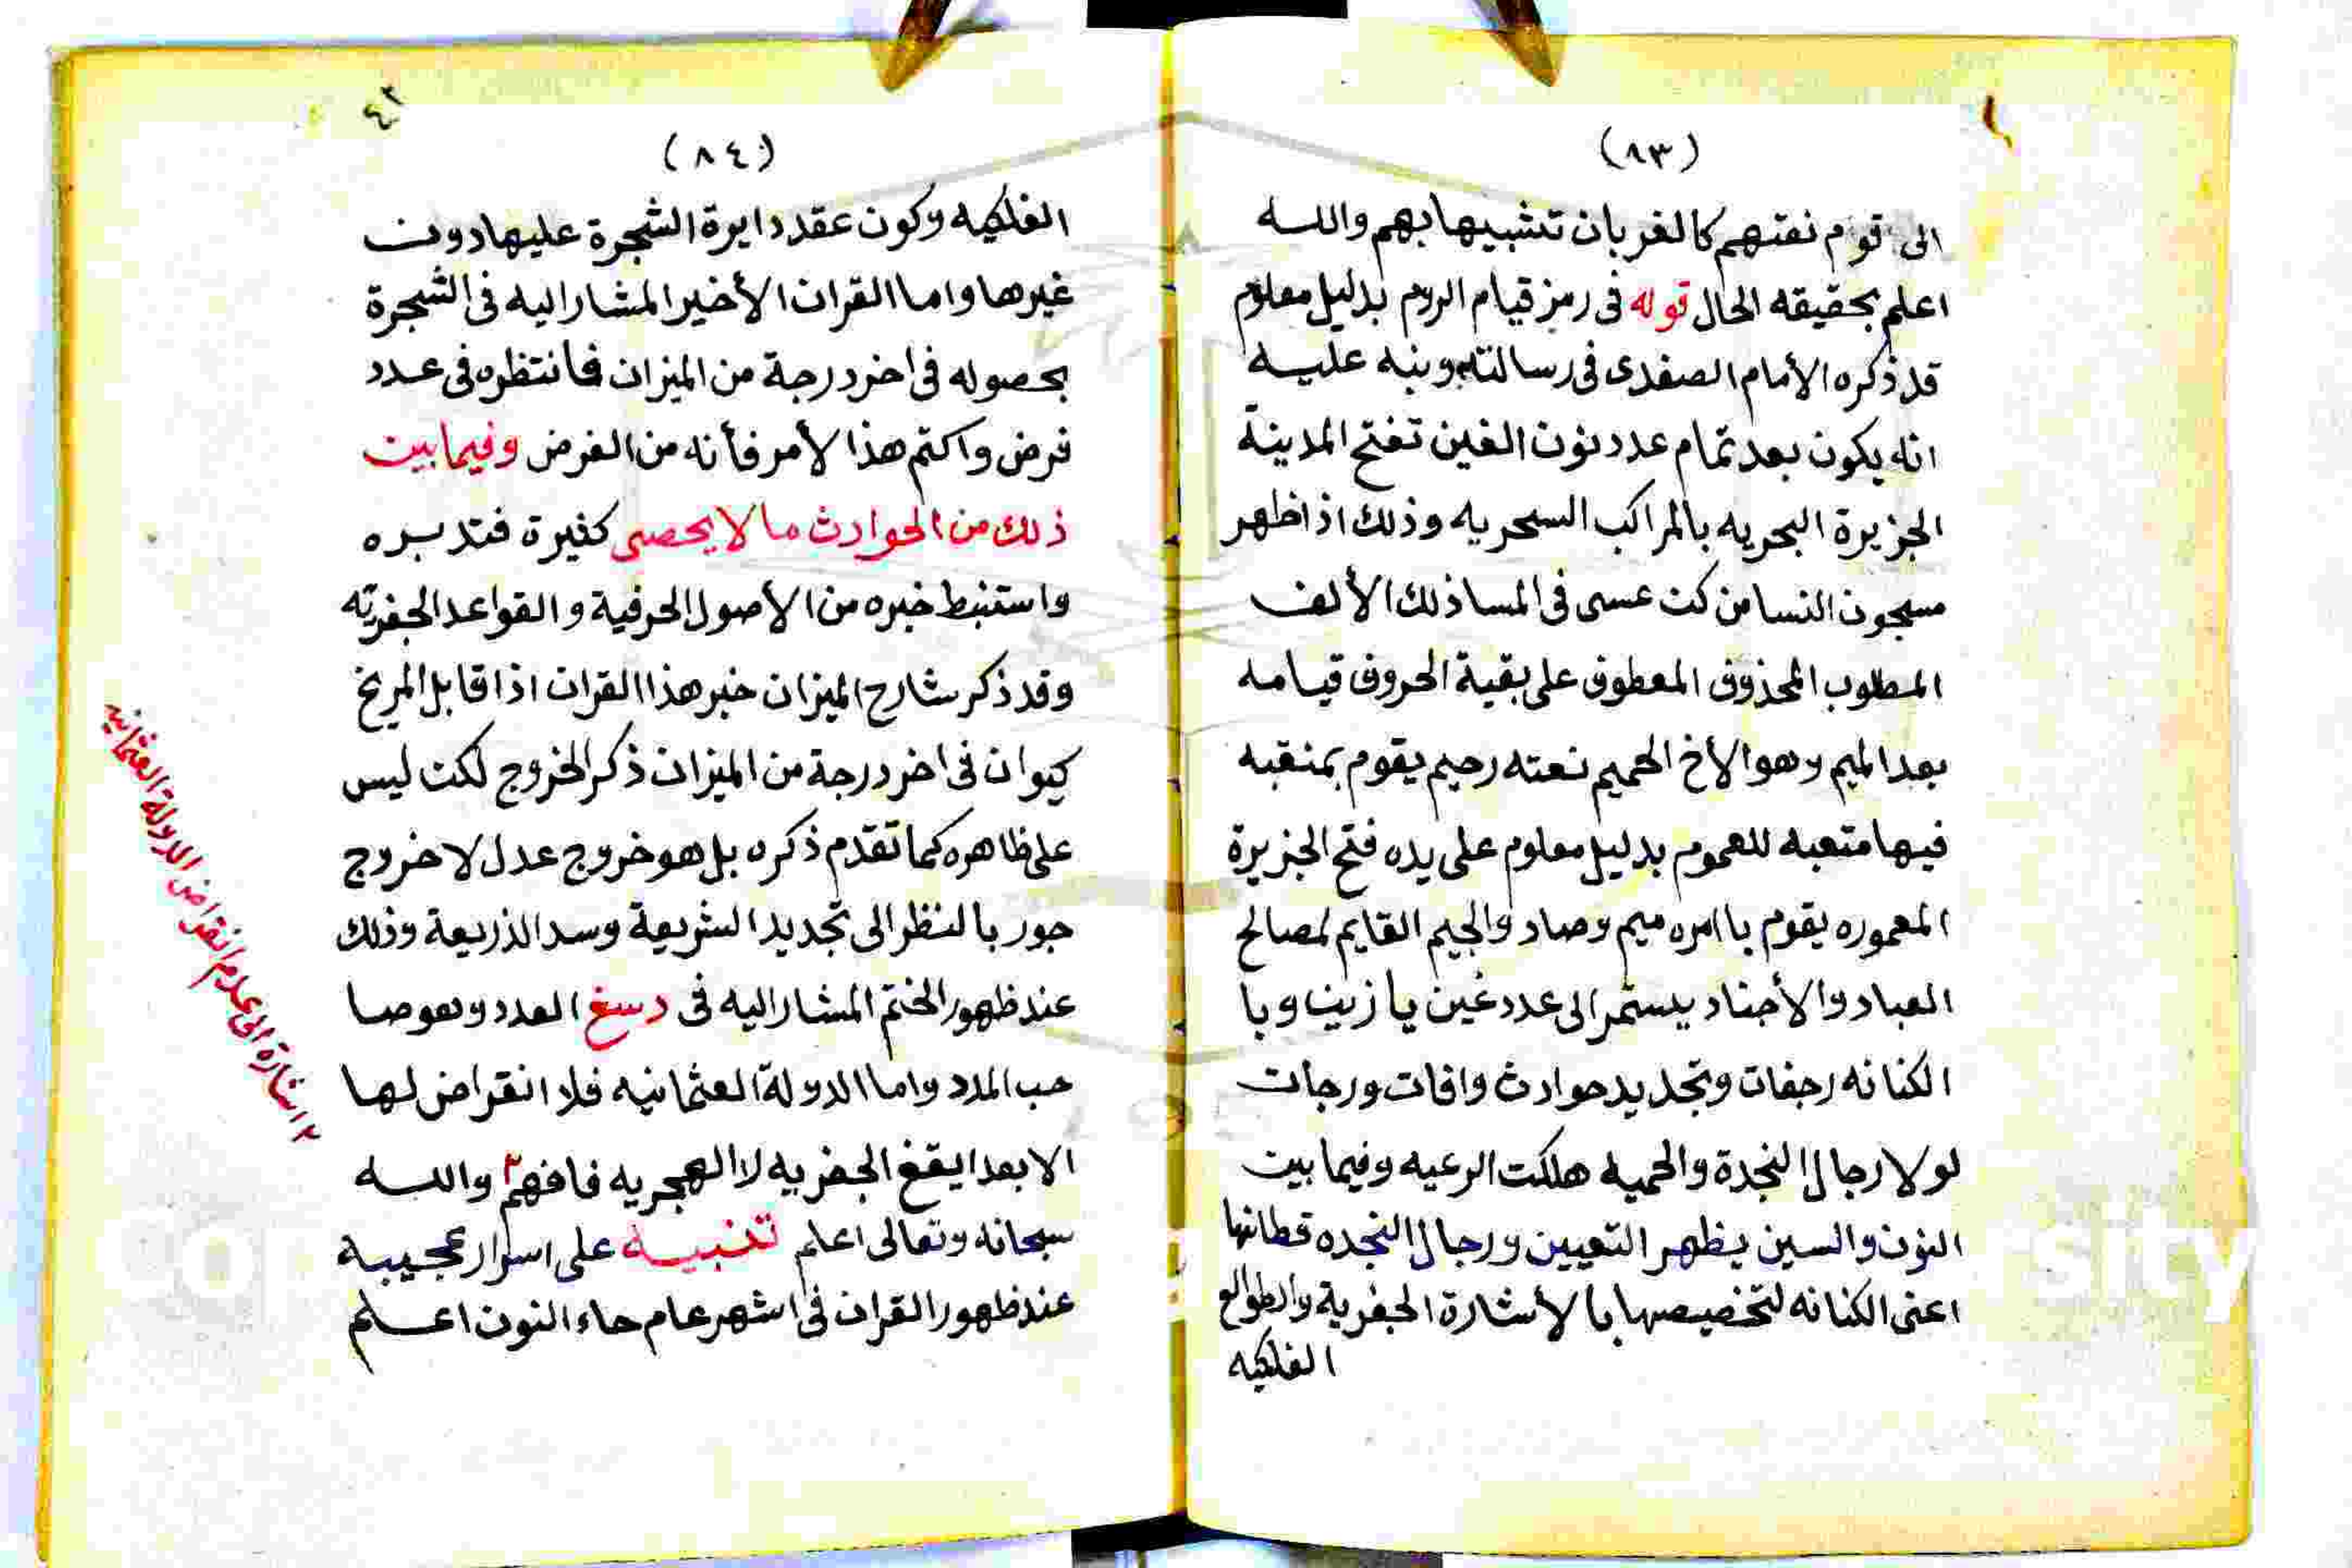 (٨٣)
الى قوم نعتهم كالغربان تشبيها بهم والله
اعلم بحقيقه الحال قوله فى رمز قيام الروم بدليل معلوم
قد ذكره الأمام الصفدى فى رسالته ونبه عليه
انه يكون بعد تمام عدد نون الغين تفتح المدينة
الجزيرة البحريه بالمراكب السحريه وذلك اذا ظهر
مسجون النسا من كت عسى فى المسا ذلك الألف
المطلوب المحذوف المعطوف على بقية الحروف قيامه
بعد الميم وهو الأخ الحميم نعته رحيم يقوم بمنقبه
فيها متعبه للعموم بدليل معلوم على يده فتح الجزيرة
المعموره يقوم باامره ميم وصاد والجيم القايم لمصالح
العباد والأجناد يستمر الى عدد غين يا زين وبا
الكنانه رجفات وتجديد حوادث وافات ورجات
لولا رجال النجدة والحميه هلكت الرعيه وفيما بين
النون والسين يظهر التعيين ورجال النجده قطانها
اعنى الكنانه لتخصيصها بالأشارة الجفرية والطوالع
الفلكيه
٤٢
(٨٤)
الفلكيه وكون عقد دايرة الشجرة عليها دون
غيرها واما القران الأخير المشار اليه فى الشجرة
بحصوله فى اخر درجة من الميزان فانتظره فى عدد
فرض واكتم هذا الأمر فأنه من الفرض وفيما بين
ذلك من الحوادث ما لا يحصى كثيرة فتدبره
واستنبط خبره من الأصول الحرفية والقواعد الجفريّه
وقد ذكر شارح الميزان خبر هذا القران اذا قابل المريخ
كيوان فى اخر درجة من الميزان ذكر الخروج لكن ليس
على ظاهره كما تقدم ذكره بل هو خروج عدل لا خروج
جور بالنظر الى تجديد الشريعة وسد الذريعة وذلك
عند ظهور الختم المشار اليه فى دسغ العدد وهو صا
حب المدد واما الدولة العثمانيه فلا انقراض لها
الا بعد ايقغ الجفريه لا الهجريه فافهم٢ والله
سبحانه وتعالى اعلم تنبيه على اسرار عجيبة
عند ظهور القران فى اشهر عام حاء النون اعلم
٢ اشارة الى عدم انقراض الدولة العثمانيه